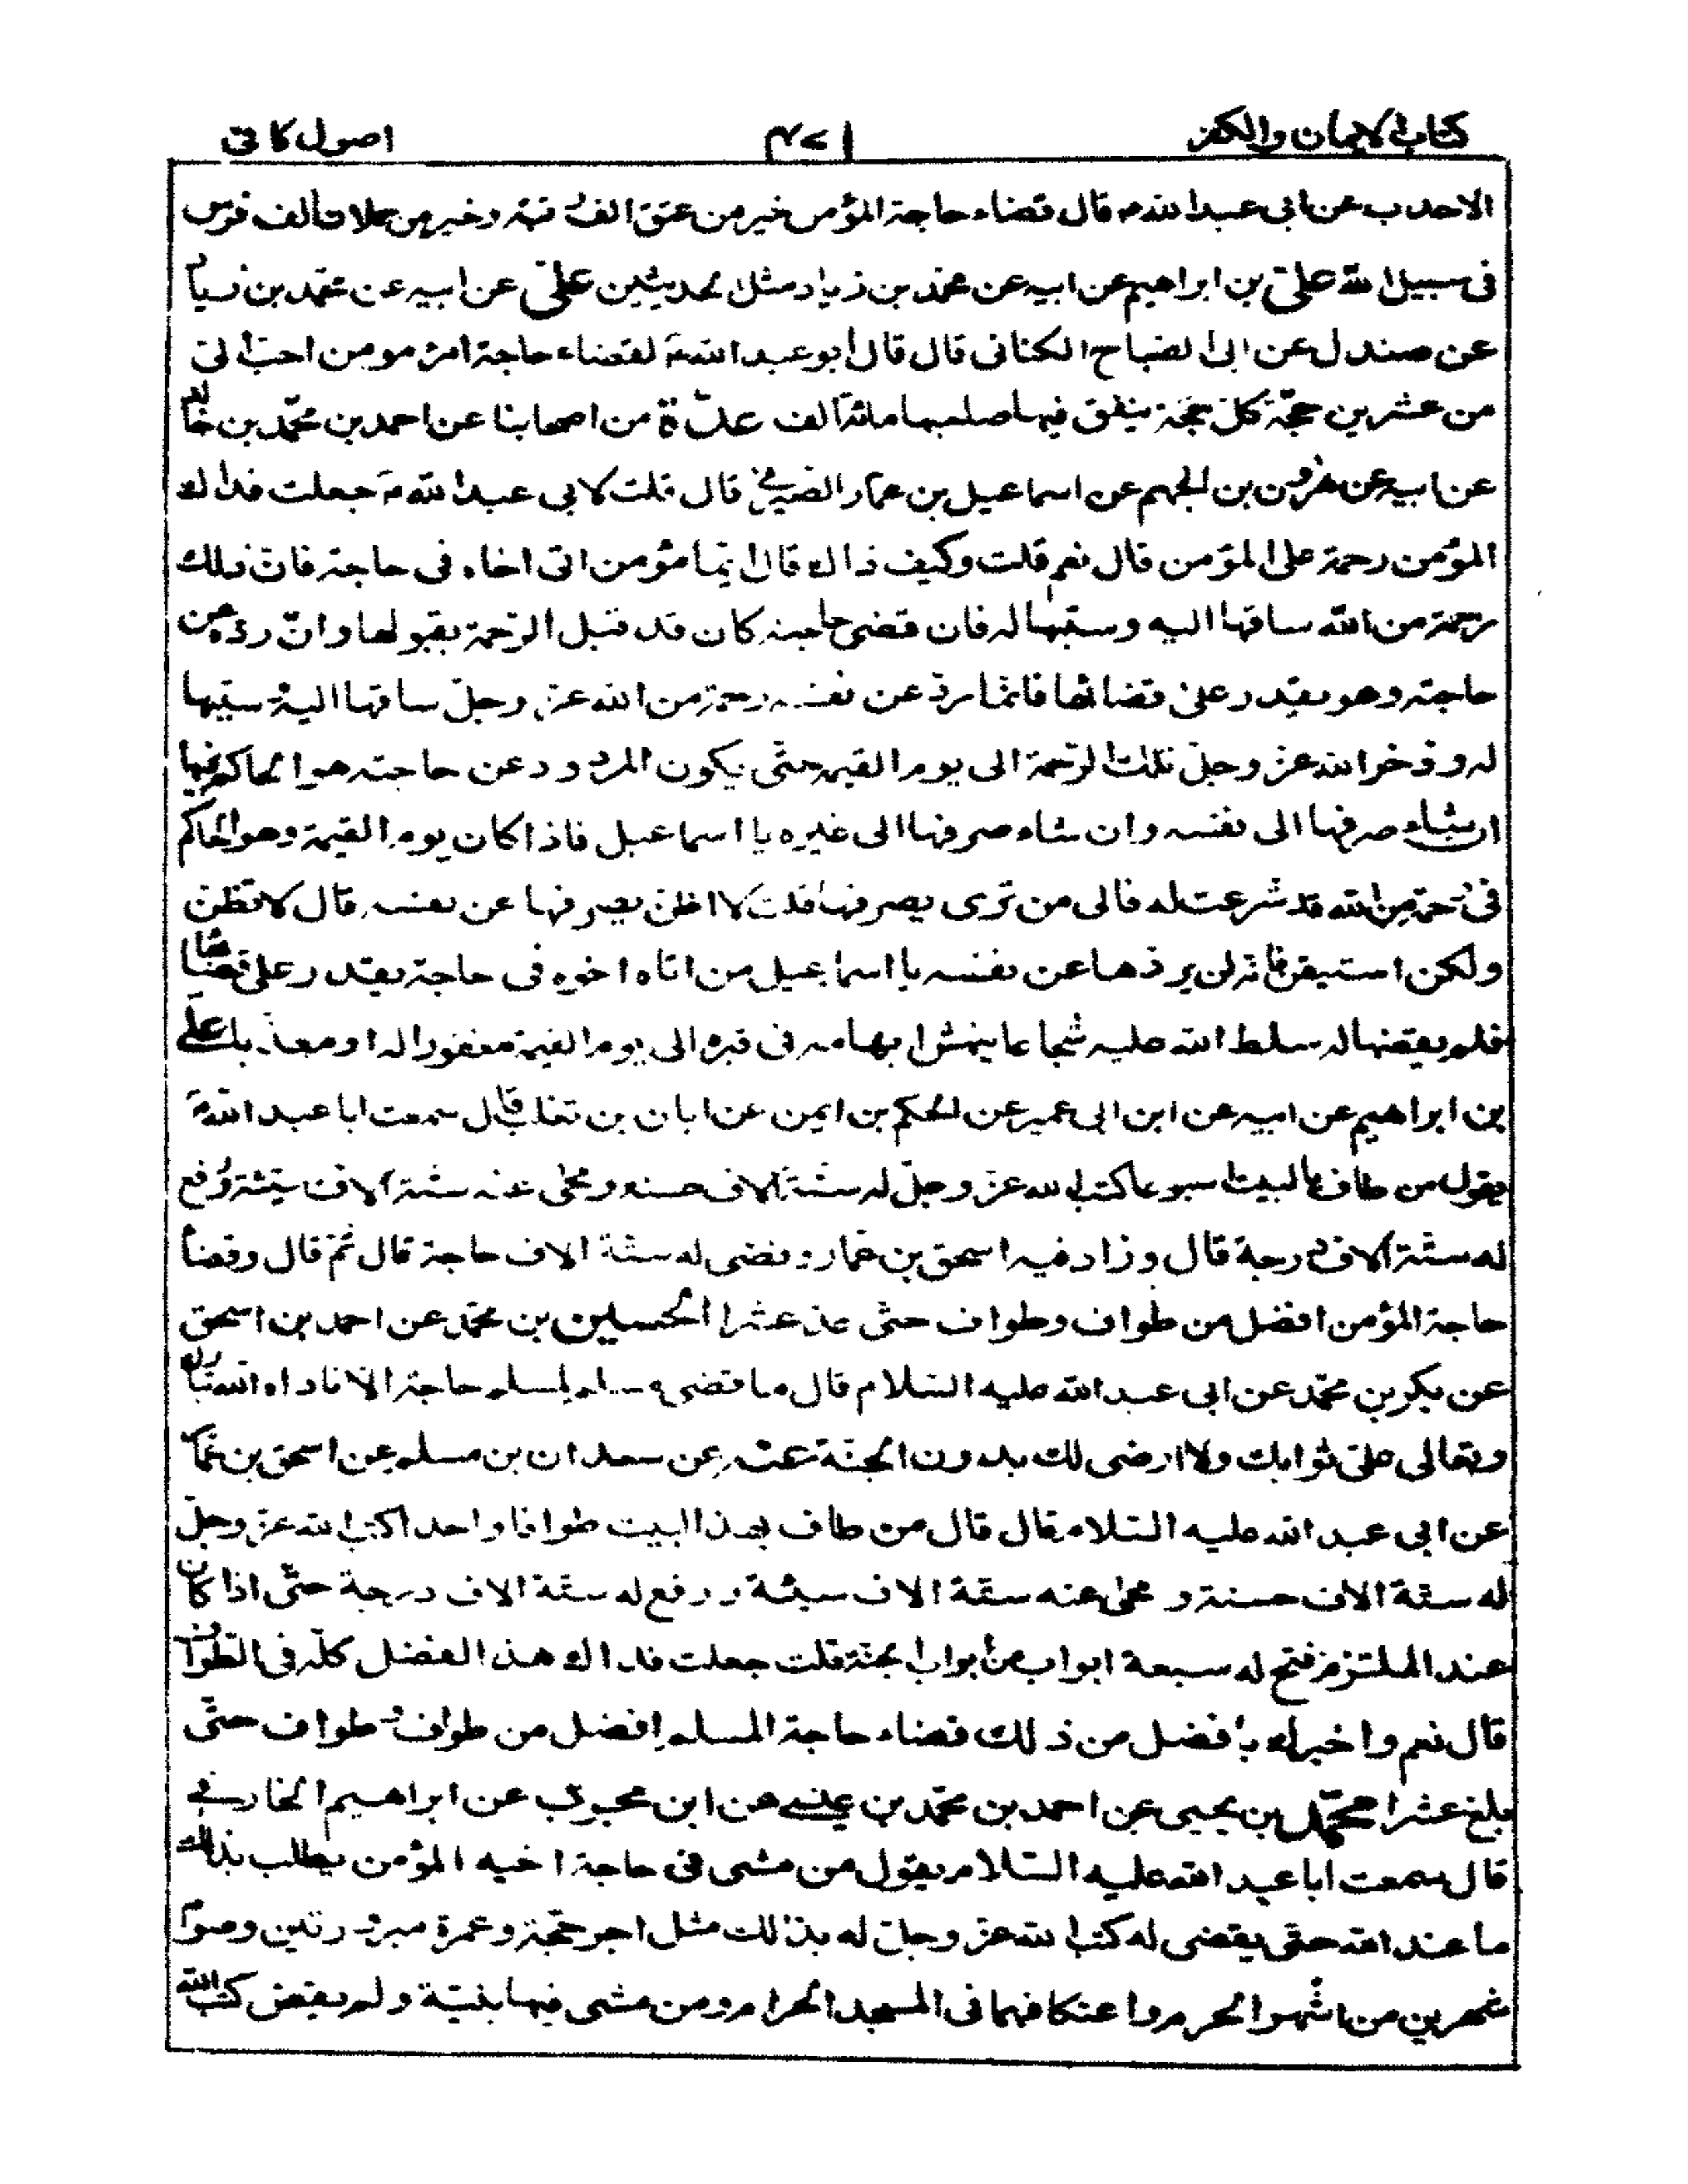 كتاب الايمان والكفر
اصول كافى
الاحدب عن ابى عبد الله م قال قضاء حاجة المؤمن خير من عتق الف نسمة وخير من حملان الف فرس
فى سبيل الله على بن ابراهيم عن ابيه عن محمد بن زياد مثل الحديثين على عن ابيه عن محمد بن زياد
عن صندل عن ابى الصباح الكنانى قال قال ابو عبد الله م لقضاء حاجة امرء مومن احب الى
من عشرين حجة كل حجة ينفق فيها صاحبها مائة الف عدة من اصحابنا عن احمد بن محمد بن خالد
عن ابيه عن هرون بن الجهم عن اسماعيل بن عمار الصيرفى قال قلت لابى عبد الله م جعلت فداك
المؤمن رحمة على المؤمن قال نعم قلت وكيف ذاك قال ايما مؤمن اتى اخاه فى حاجة فان ذلك
رحمة من الله ساقها اليه وسببها له فان قضى حاجته كان قد قبل الرحمة بقبولها وان رده عن
حاجته وهو يقدر على قضائها فانما رد عن نفسه رحمة من الله عز وجل ساقها اليه وسببها
له وذخر الله عز وجل تلك الرحمة الى يوم القيمة حتى يكون المردود عن حاجته هو الحاكم فيها
ان شاء صرفها الى نفسه وان شاء صرفها الى غيره يا اسماعيل فاذا كان يوم القيمة وهو الحاكم
فى رحمة من الله قد شرعت له فالى من ترى يصرفها قلت لا اظن يصرفها عن نفسه قال لا تظن
ولكن استيقن فانه لن يردها عن نفسه يا اسماعيل من اتاه اخوه فى حاجة يقدر على قضائها
فلم يقضها له سلط الله عليه شجاعا ينهش ابهامه فى قبره الى يوم القيمة مغفورا له او معذبا على
بن ابراهيم عن ابيه عن ابن ابى عمير عن الحكم بن ايمن عن ابان بن تغلب قال سمعت ابا عبد الله م
يقول من طاف بالبيت اسبوعا كتب الله عز وجل له ستة الاف حسنة ومحى عنه ستة الاف سيئة ورفع
له ستة الاف درجة قال وزاد فيه اسحق بن عمار وقضى له ستة الاف حاجة قال ثم قال وقضاء
حاجة المؤمن افضل من طواف وطواف حتى عد عشرا الحسين بن محمد عن احمد بن اسحق
عن بكر بن محمد عن ابى عبد الله عليه السلام قال ما قضى مسلم لمسلم حاجة الا ناداه الله تبارك
وتعالى على ثوابك ولا ارضى لك بدون الجنة عنه عن سعدان بن مسلم عن اسحق بن عمار
عن ابى عبد الله عليه السلام قال قال من طاف بهذا البيت طوافا واحدا كتب الله عز وجل
له ستة الاف حسنة و محى عنه ستة الاف سيئة و رفع له ستة الاف درجة حتى اذا كان
عند الملتزم فتح له سبعة ابواب من ابواب الجنة قلت جعلت فداك هذا الفضل كله فى الطواف
قال نعم واخبرك بافضل من ذلك قضاء حاجة المسلم افضل من طواف و طواف حتى
بلغ عشرا محمد بن يحيى عن احمد بن محمد بن عيسى عن ابن محبوب عن ابراهيم الخارقى
قال سمعت ابا عبد الله عليه السلام يقول من مشى فى حاجة اخيه المؤمن يطلب بذلك
ما عند الله حتى يقضى له كتب الله عز وجل له بذلك مثل اجر حجة وعمرة مبرورتين وصوم
شهرين من اشهر الحرم واعتكافهما فى المسجد الحرام ومن مشى فيها بنية ولم يقض كتب الله